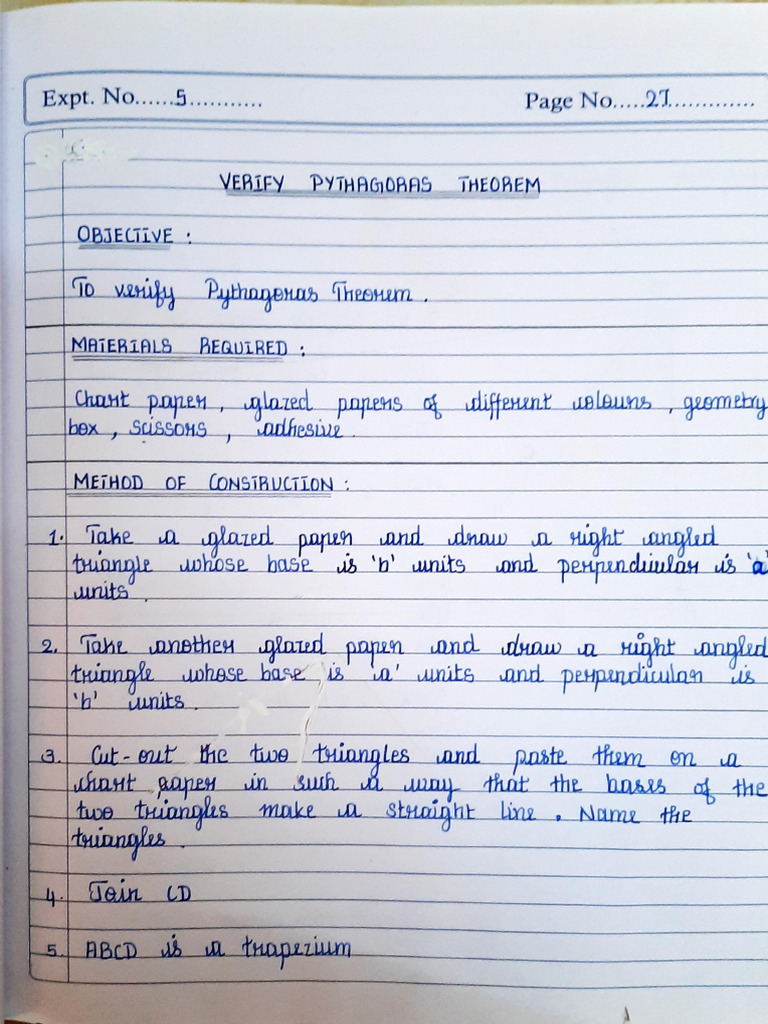 Expt. No......5........... Page No.....27.............
VERIFY PYTHAGORAS THEOREM
OBJECTIVE :
To verify Pythagoras Theorem .
MATERIALS REQUIRED :
Chart paper , glazed papers of different colours , geometry
box , scissors , adhesive .
METHOD OF CONSTRUCTION :
1. Take a glazed paper and draw a right angled
triangle whose base is 'b' units and perpendicular is 'a'
units .
2. Take another glazed paper and draw a right angled
triangle whose base is 'a' units and perpendicular is
'b' units .
3. Cut-out the two triangles and paste them on a
chart paper in such a way that the bases of the
two triangles make a straight line . Name the
triangles .
4. Join CD
5. ABCD is a trapezium